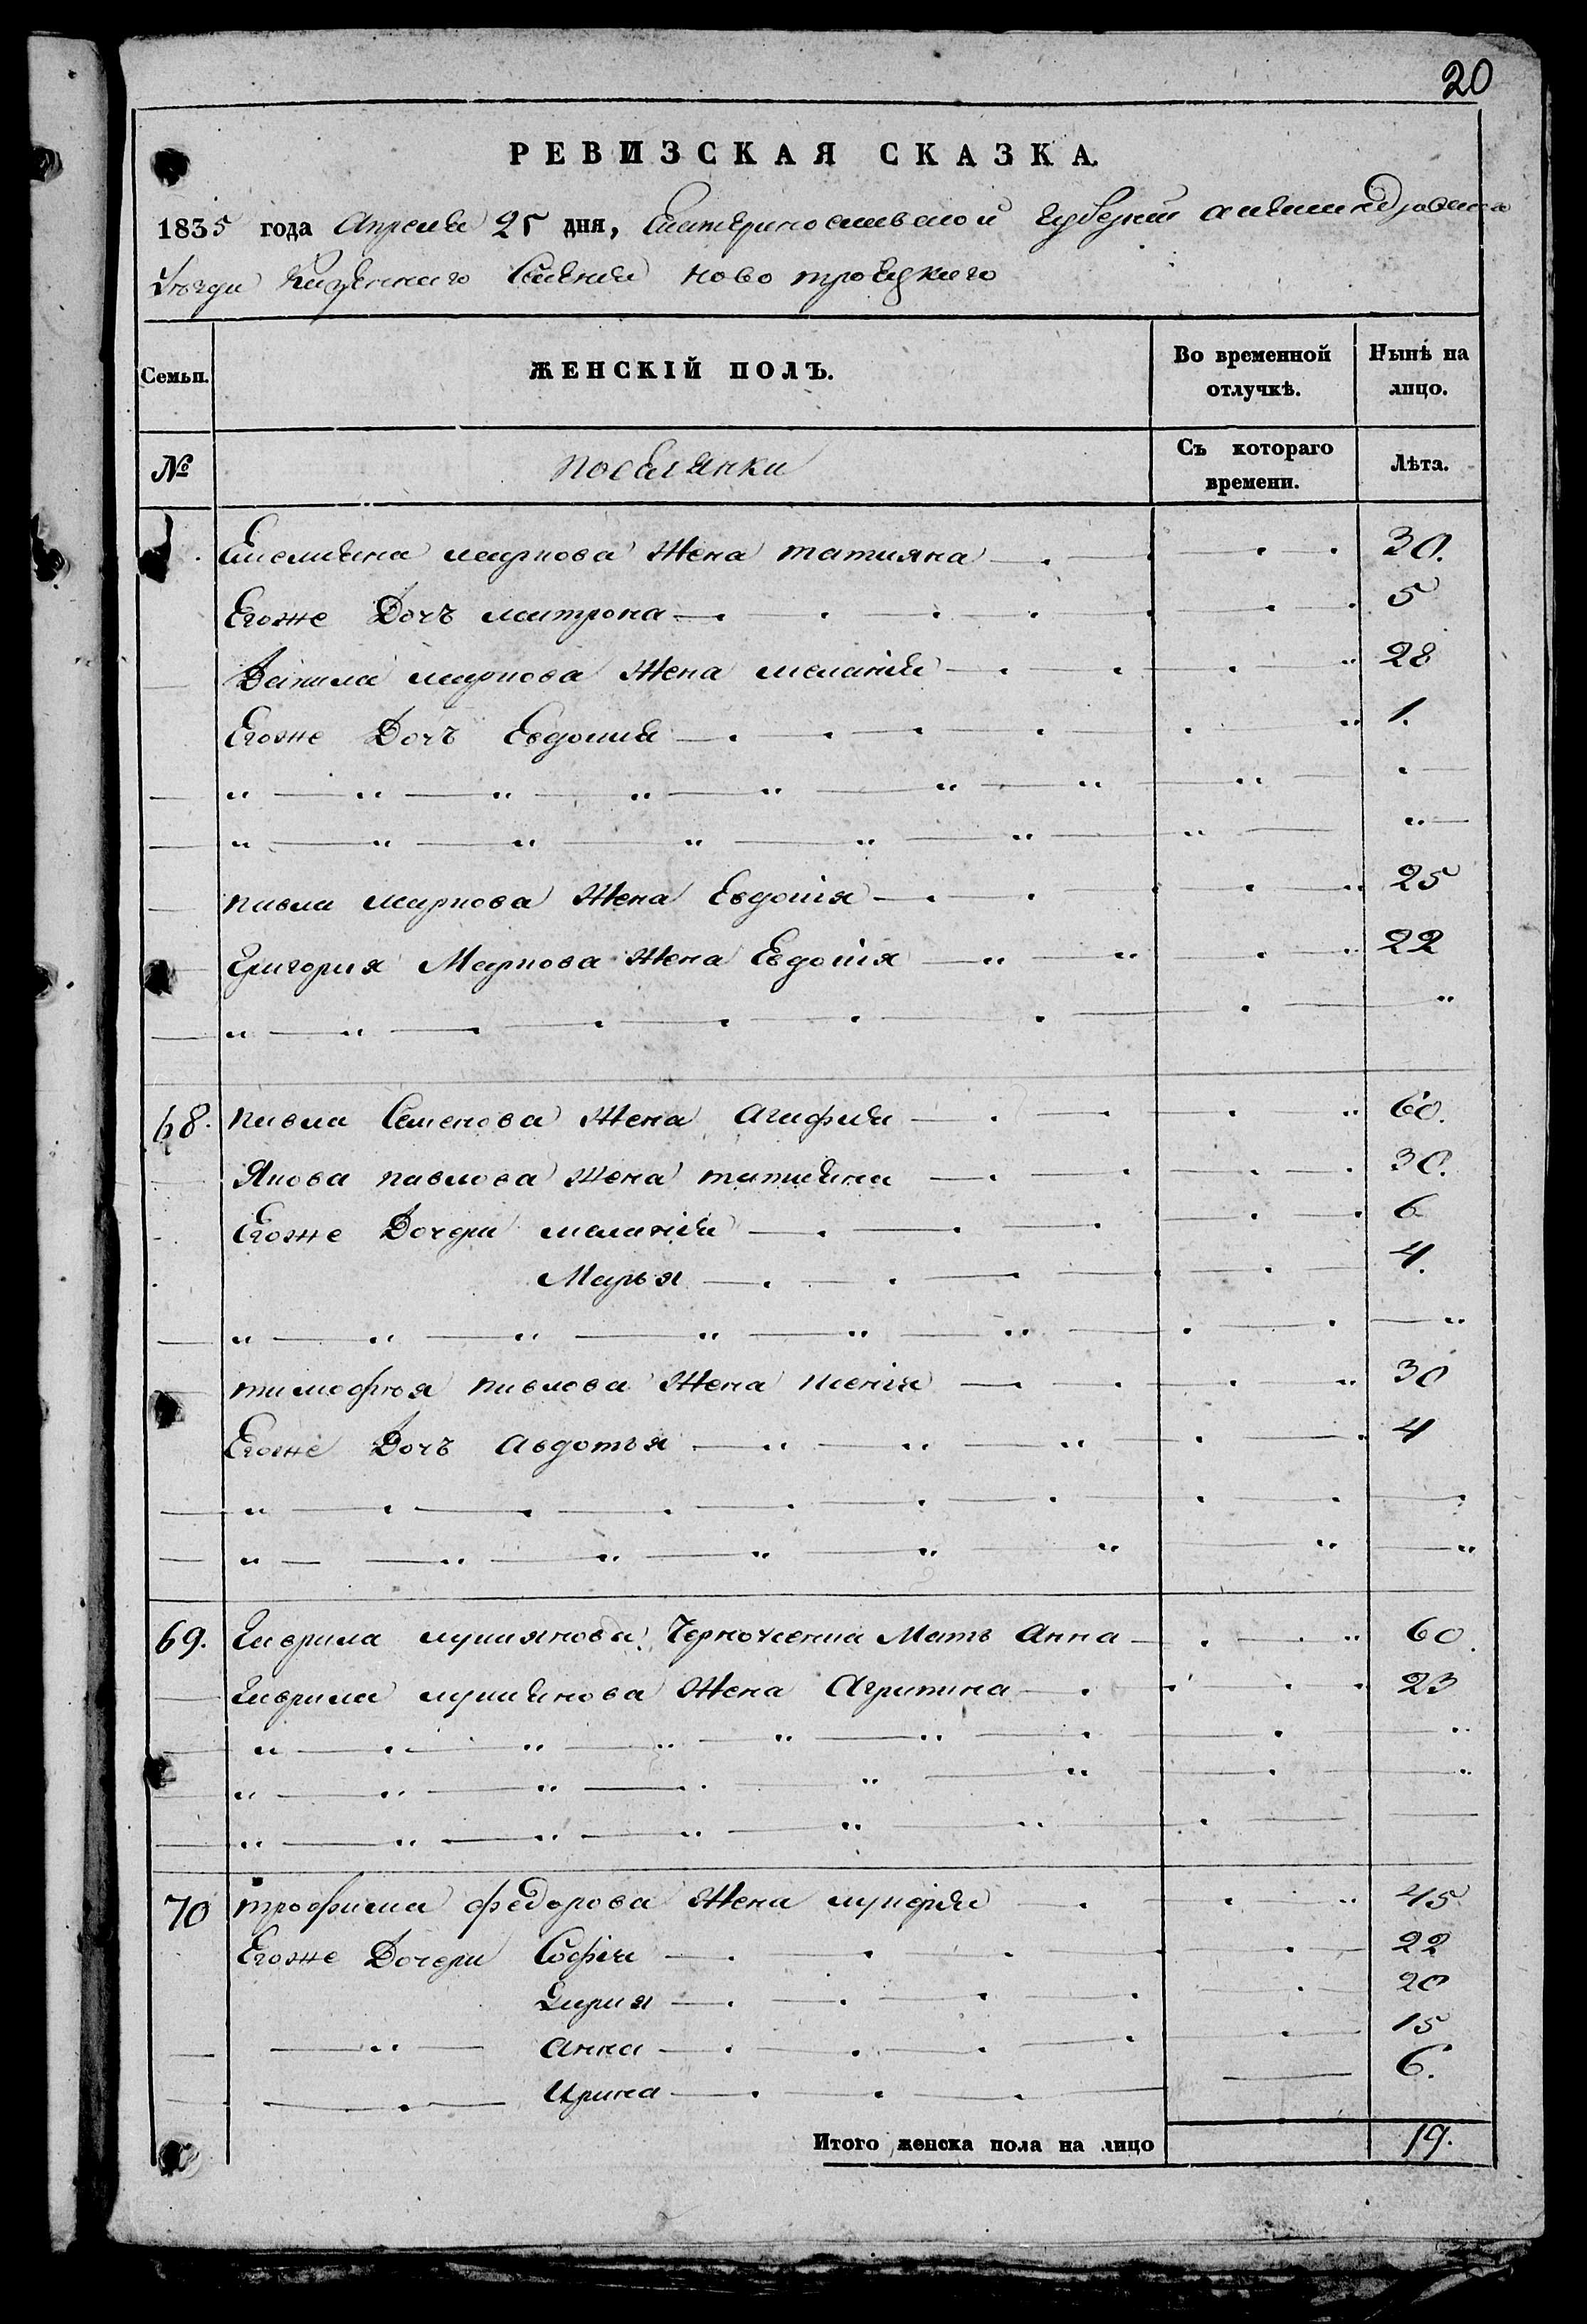 20
РЕВИЗСКАЯ СКАЗКА.
1835 года Апреля 25 дня, Екатеринославской Губернии Александровска
Уезда Казеннаго Селения Ново троецкаго
Семьи. ЖЕНСКІЙ ПОЛЪ. Во временной отлучкѣ. Нынѣ на лицо.
№ поселянки Съ котораго времени. Лѣта.
Емелияна маркова Жена татияна 30.
Егоже Дочъ матрона 5
Данила маркова Жена меланія 28
Егоже Дочъ Евдокия 1.
павла маркова Жена Евдокія 25
Григория Маркова Жена Евдокія 22
68. павла Семенова Жена Агафия 60.
Якова павлова Жена татияна 30.
Егоже Дочери меланія 6
Марья 4.
тимофѣя павлова Жена ксенія 30
Егоже Дочъ Авдотья 4
69. Гаврила лукиянова Мать Анна 60.
Гаврила лукиянова Жена Агрипина 23
70 трофима федорова Жена лукерія 45
Егоже Дочери Софія 22
Дария 20
Анна 15
Ирина 6.
Итого женска пола на лицо 19.